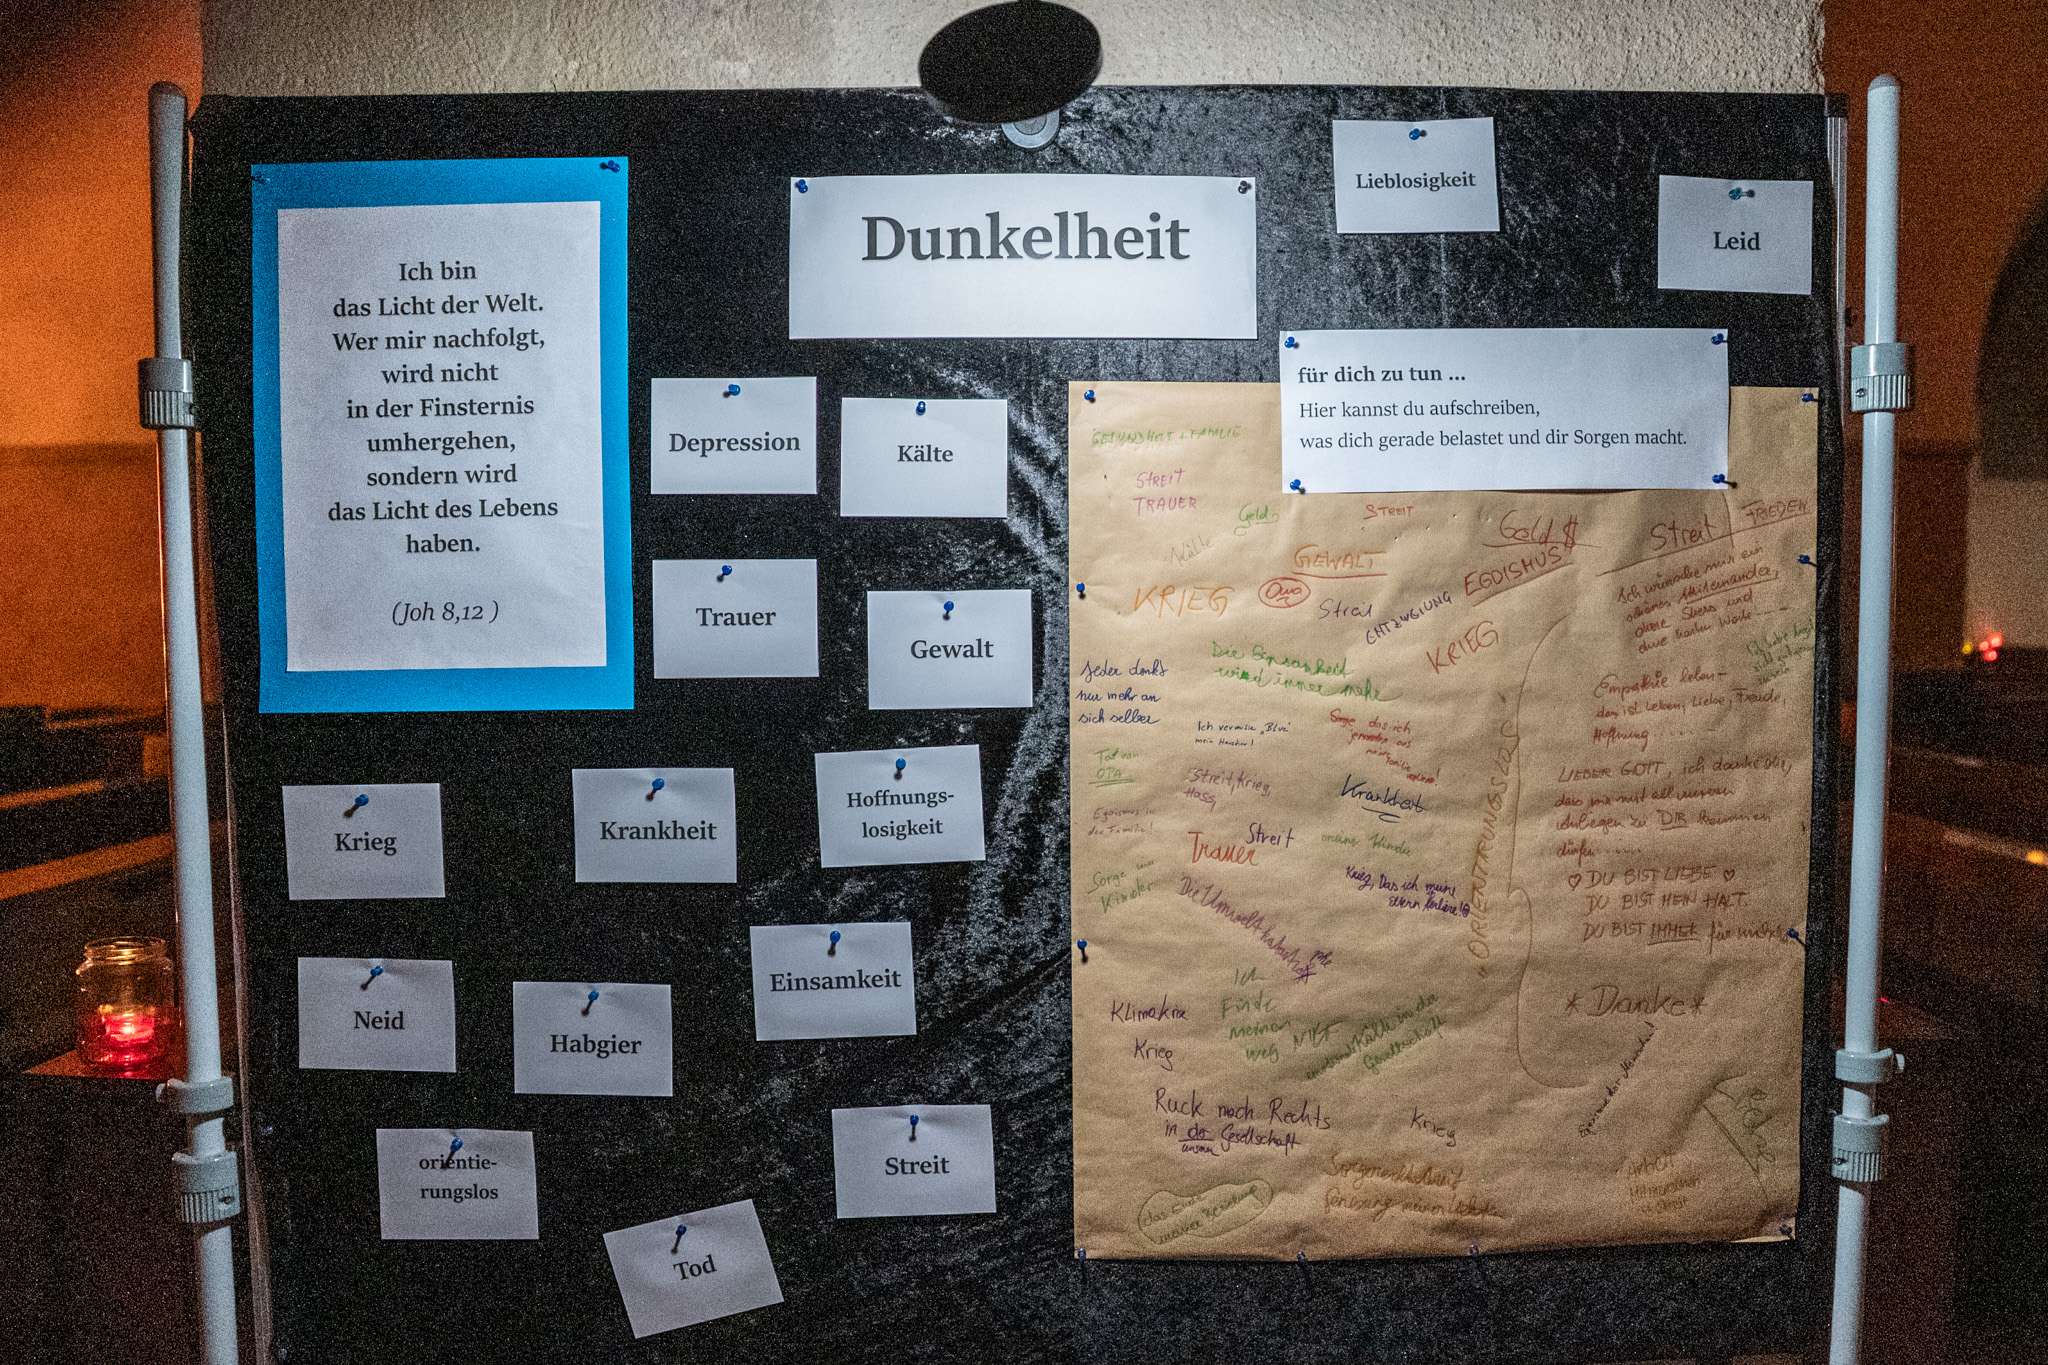 Dunkelheit
Lieblosigkeit
Leid
Ich bin
das Licht der Welt.
Wer mir nachfolgt,
wird nicht
in der Finsternis
umhergehen,
sondern wird
das Licht des Lebens
haben.
(Joh 8,12 )
Depression
Kälte
Trauer
Gewalt
Krieg
Krankheit
Hoffnungs-
losigkeit
Neid
Habgier
Einsamkeit
orientie-
rungslos
Tod
Streit
für dich zu tun ...
Hier kannst du aufschreiben,
was dich gerade belastet und dir Sorgen macht.
GESUNDHEIT + FAMILIE
STREIT
TRAUER
Geld
Kälte
STREIT
GEWALT
Geld $
EGOISMUS
Streit
FRIEDEN
KRIEG
Oma
Streit
ENTZWEIUNG
KRIEG
Ich wünsche mir ein
Miteinander,
ohne Stress und
ohne
Jeder denkt
nur mehr an
sich selber
Die Einsamkeit
wird immer mehr
Empathie leben –
das ist Leben, Liebe, Freude,
Hoffnung
Ich vermisse „Blue“
mein
Sorge, das ich
jemanden aus
meiner Familie verliere!
Tot von
OPA
Streit, Krieg,
Hass,
Krankheit
LIEBER GOTT, ich danke dir,
dass wir mit all unseren
Anliegen zu DIR kommen
dürfen
Egoismus in
der Familie!
Trauer
Streit
meine Kinder
Sorge um
Kinder
Krieg, Das ich meine
Eltern verliere!
„ORIENTIERUNGSLOS“
♡ DU BIST LIEBE ♡
DU BIST MEIN HALT.
DU BIST IMMER für mich
Die Umweltkatastrophe
Ich
Finde
meinen
weg
Nicht
Kälte in der
Gesellschaft
Klimakrise
Krieg
* Danke *
Ruck nach Rechts
in der Gesellschaft
unserer
Krieg
das Ende
meiner Beziehung